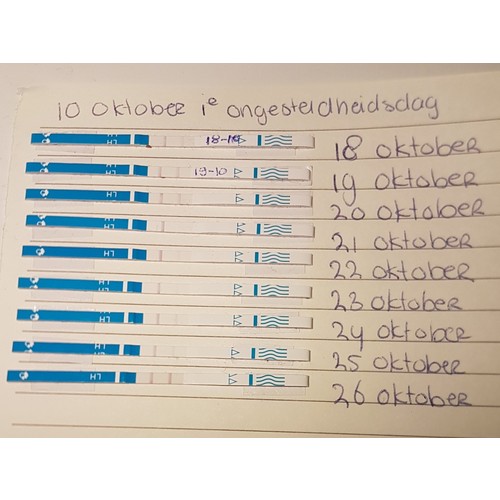 10 oktober 1e ongesteldheidsdag
LH 18-10 18 oktober
LH 19-10 19 oktober
LH 20 oktober
LH 21 oktober
LH 22 oktober
LH 23 oktober
LH 24 oktober
LH 25 oktober
LH 26 oktober